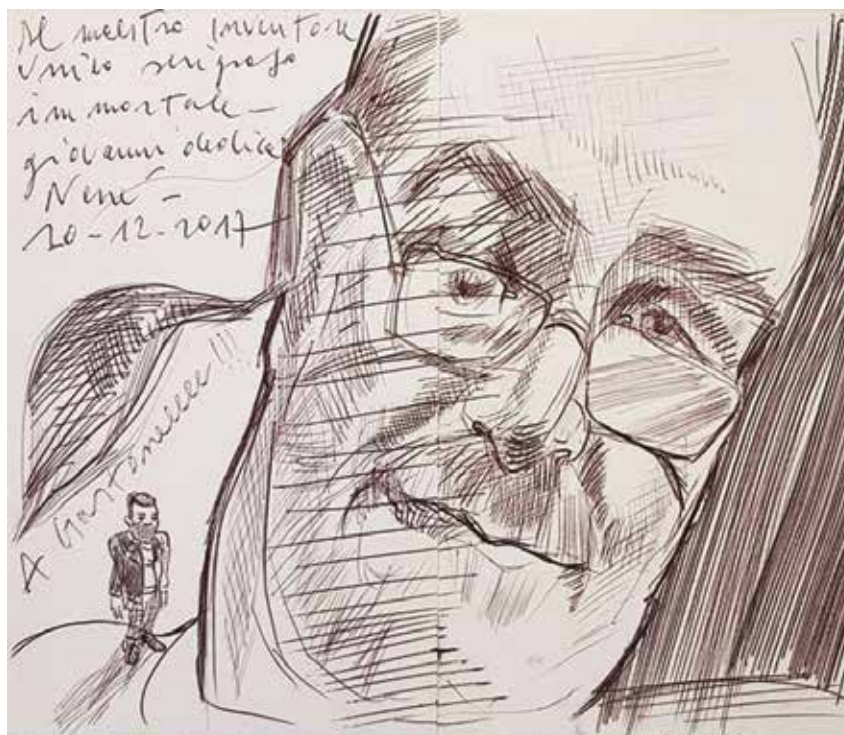 Al maestro inventore
unico serigrafo
immortale -
giovanni dedica
Nenè -
20-12-2017
A Gastoneeeee!!!